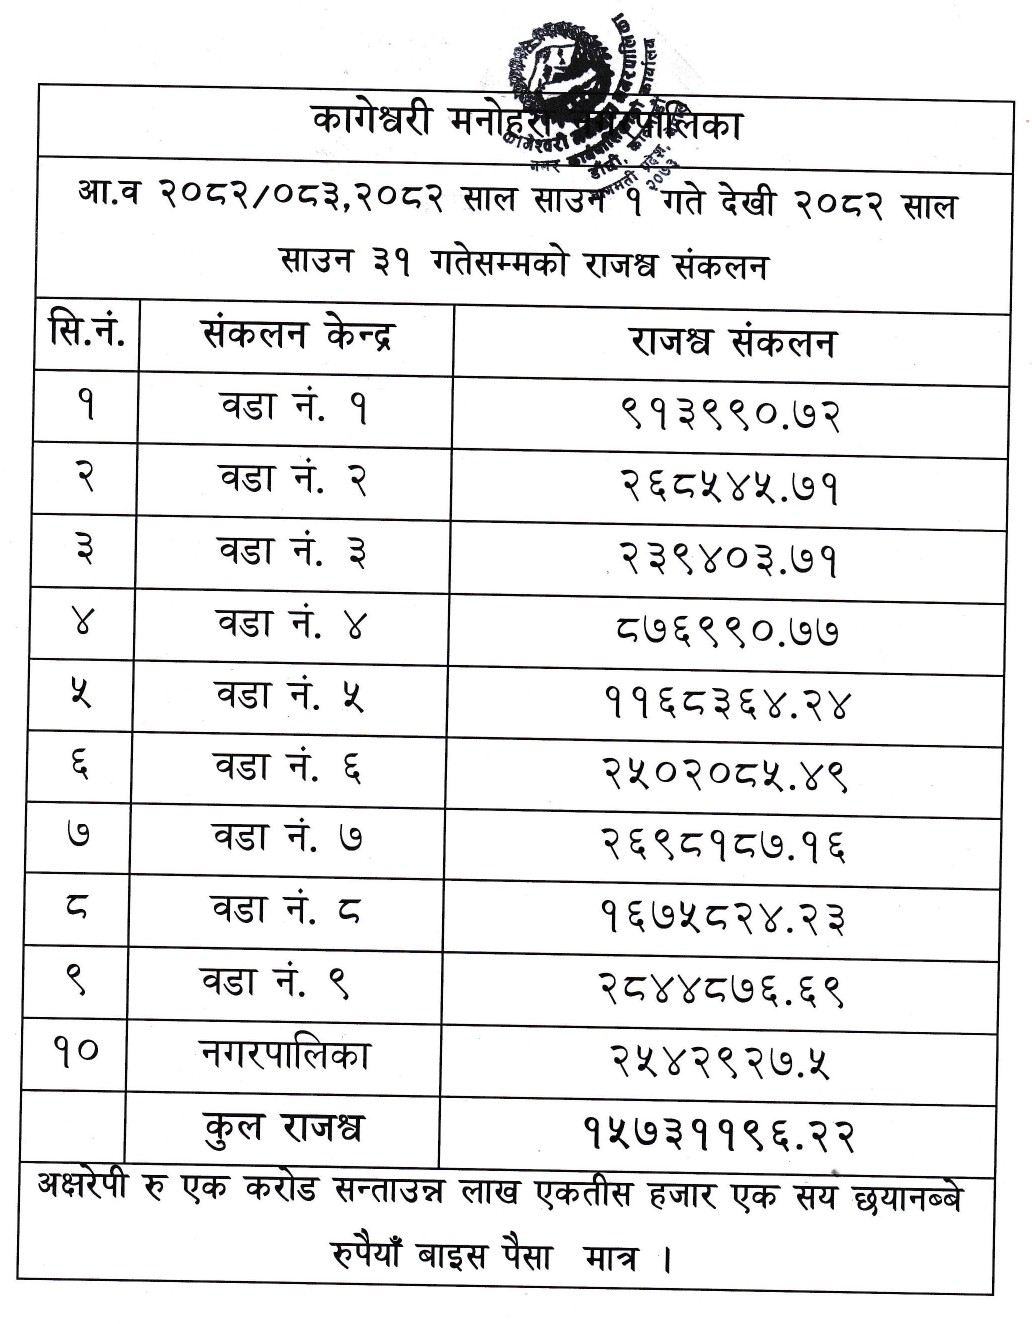 कागेश्वरी मनोहरा नगरपालिका
आ.व २०८२/०८३,२०८२ साल साउन १ गते देखी २०८२ साल
साउन ३१ गतेसम्मको राजश्व संकलन
सि.नं. संकलन केन्द्र राजश्व संकलन
१ वडा नं. १ ९१३९९०.७२
२ वडा नं. २ २६८५४५.७१
३ वडा नं. ३ २३९४०३.७१
४ वडा नं. ४ ८७६९९०.७७
५ वडा नं. ५ ११६८३६४.२४
६ वडा नं. ६ २५०२०८५.४९
७ वडा नं. ७ २६९८१८७.१६
८ वडा नं. ८ १६७५८२४.२३
९ वडा नं. ९ २८४४८७६.६९
१० नगरपालिका २५४२९२७.५
कुल राजश्व १५७३११९६.२२
अक्षरेपी रु एक करोड सन्ताउन्न लाख एकतीस हजार एक सय छयानब्बे
रुपैयाँ बाइस पैसा मात्र ।